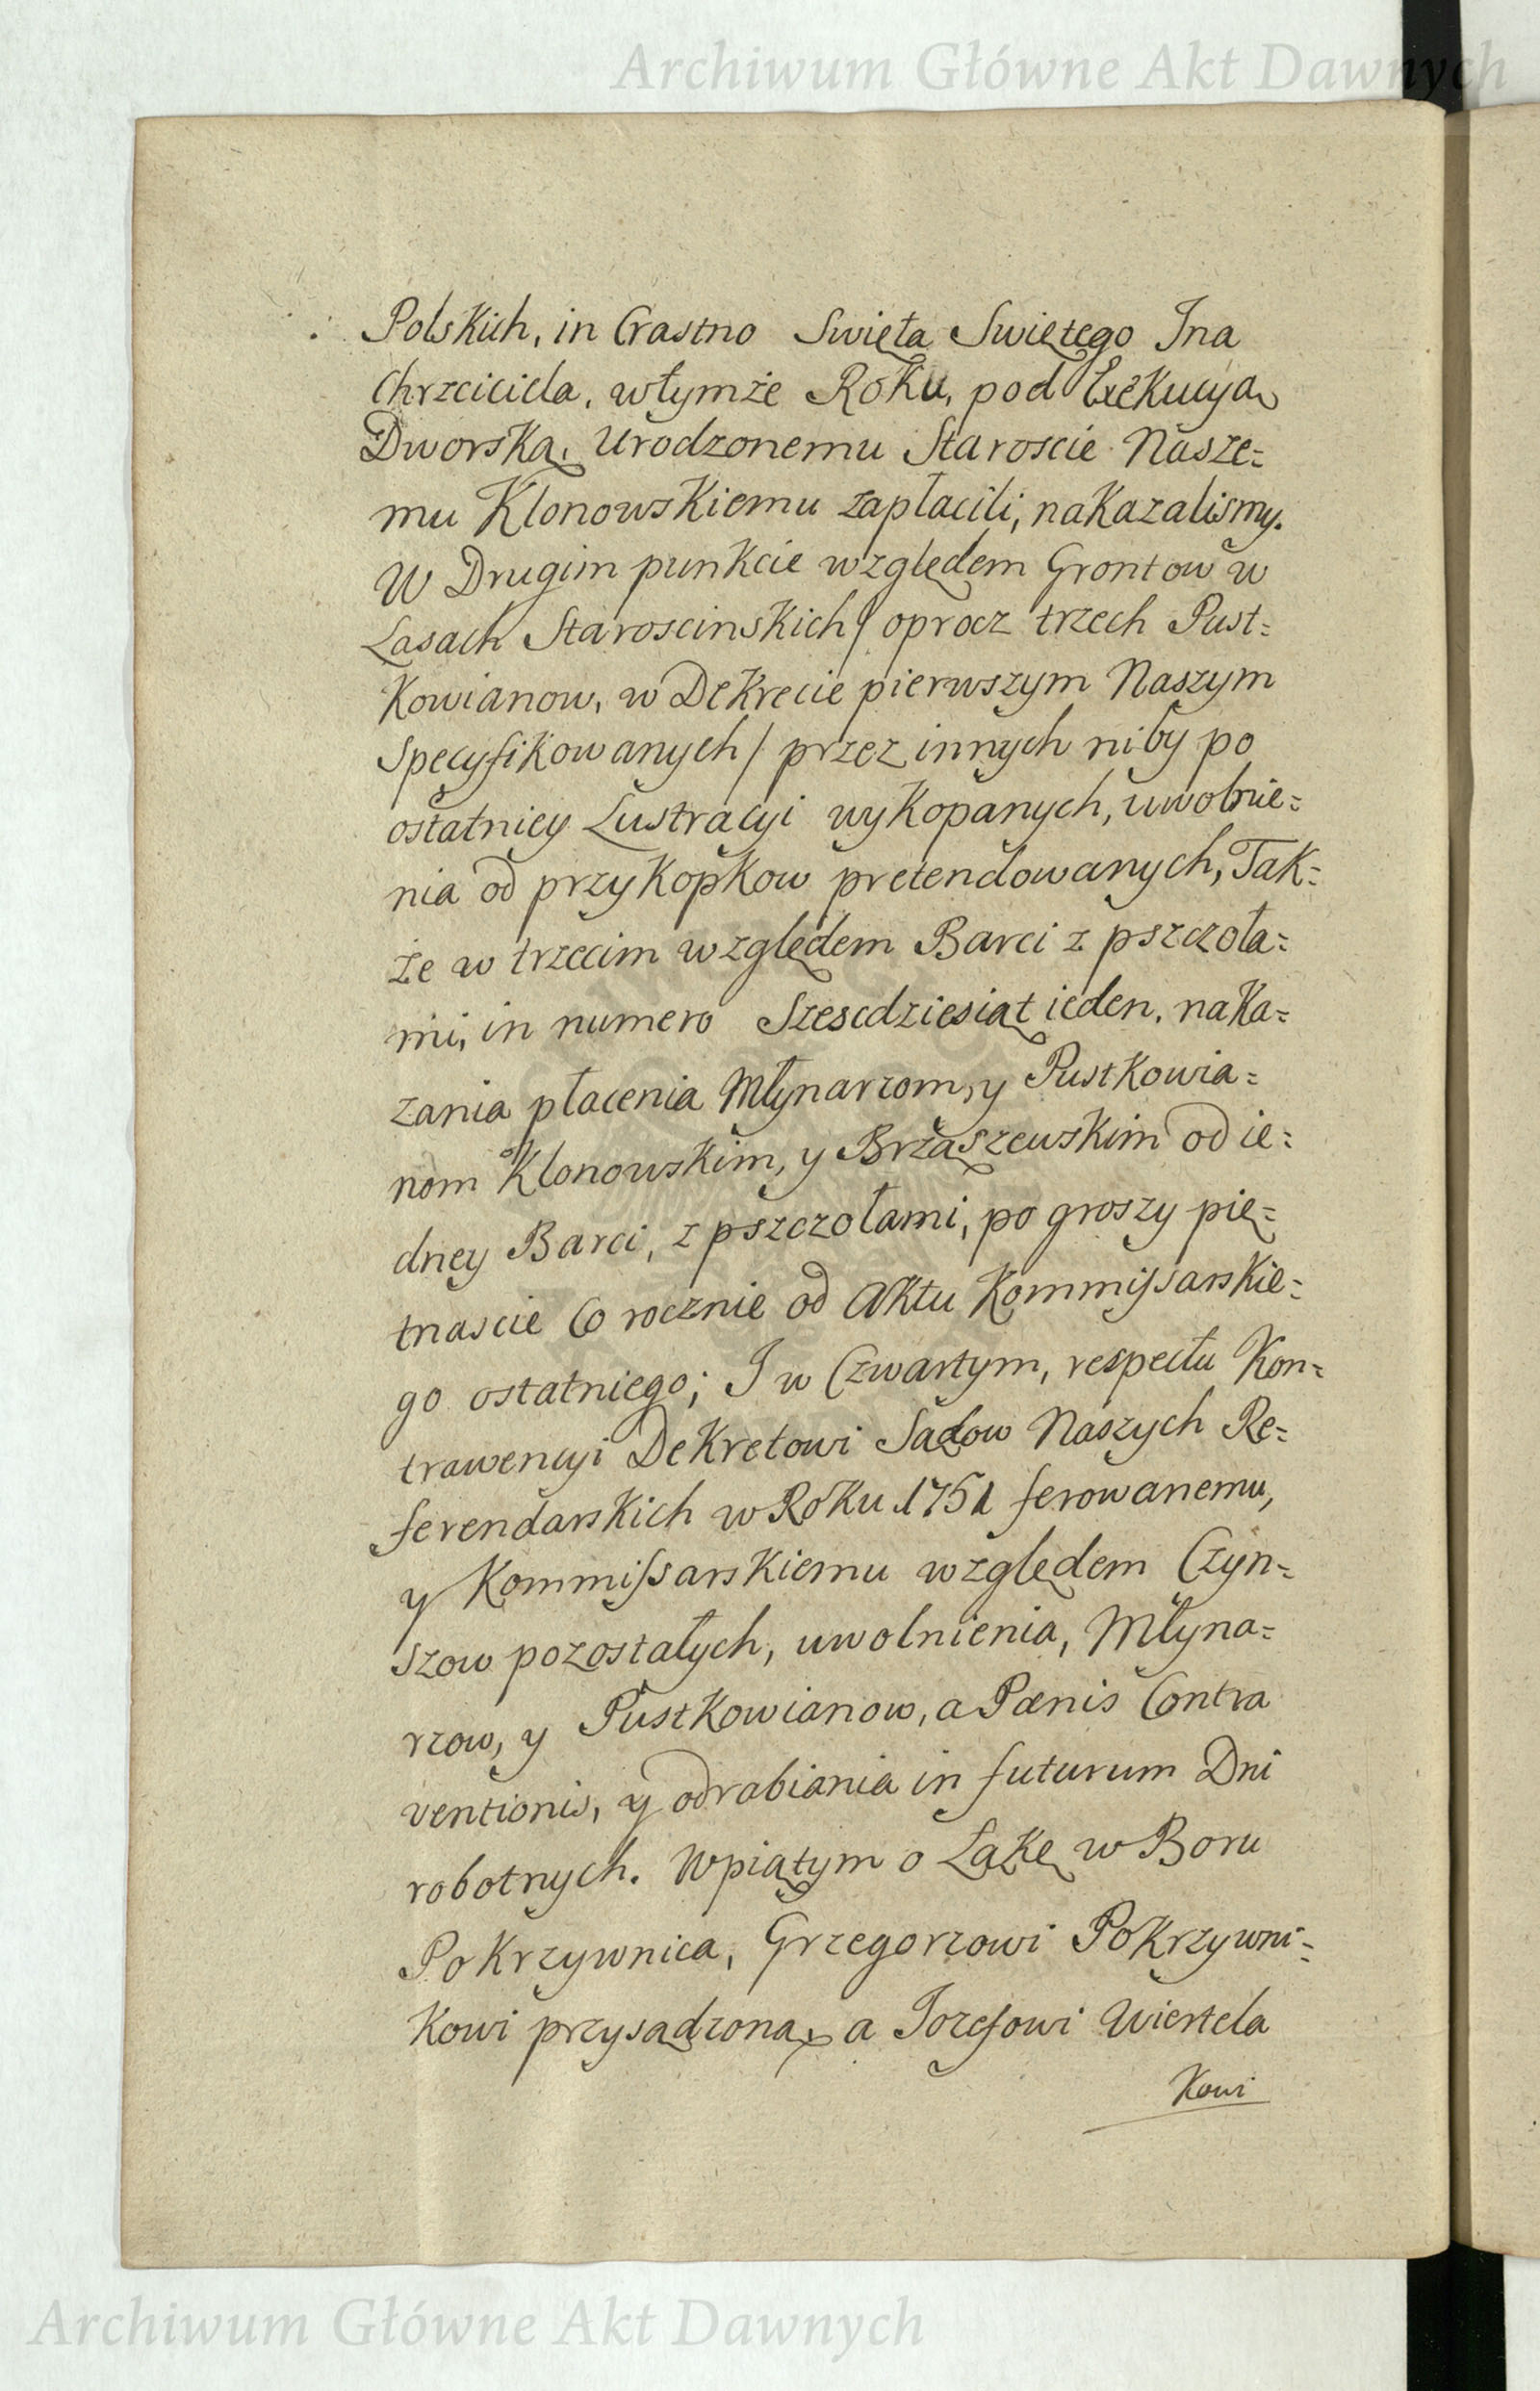 Archiwum Główne Akt Dawnych
Polskich, in Crastno Swięta Swiętego Jna
Chrzciciela, wtymże Roku, pod Exekucyą
Dworską, Urodzonemu Staroscie Nasze=
mu Klonowskiemu zapłacili, nakazalismy.
W Drugim punkcie względem Grontow w
Lasach Staroscinskich/ oprocz trzech Pust=
kowianow, w Dekrecie pierwszym Naszym
Specyfikowanych/ przez innych niby po
ostatniey Lustracyi wykopanych, uwolnie=
nia od przykopkow pretendowanych, Tak=
że w trzecim względem Barci z pszczoła=
mi, in numero Szescdziesiąt ieden, naka=
zania płacenia Młynarzom, y Pustkowia=
nom Klonowskim, y Brząszewskim od ie=
dney Barci, z pszczołami, po groszy pię=
tnascie Co rocznie od Aktu Kommissarskie=
go ostatniego; I w Czwartym, respectu Kon=
trawencyi Dekretowi Sądow Naszych Re=
ferendarskich w Roku 1751 ferowanemu,
y Kommissarskiemu względem Czyn=
szow pozostałych, uwolnienia, Młyna=
rzow, y Pustkowianow, a Pænis Contra
ventionis, y odrabiania in futurum Dni
robotnych. Wpiątym o Łąkę w Boru
Pokrzywnica, Grzegorzowi Pokrzywni=
kowi przysądzoną, a Jozefowi Wiertela
kowi
Archiwum Główne Akt Dawnych